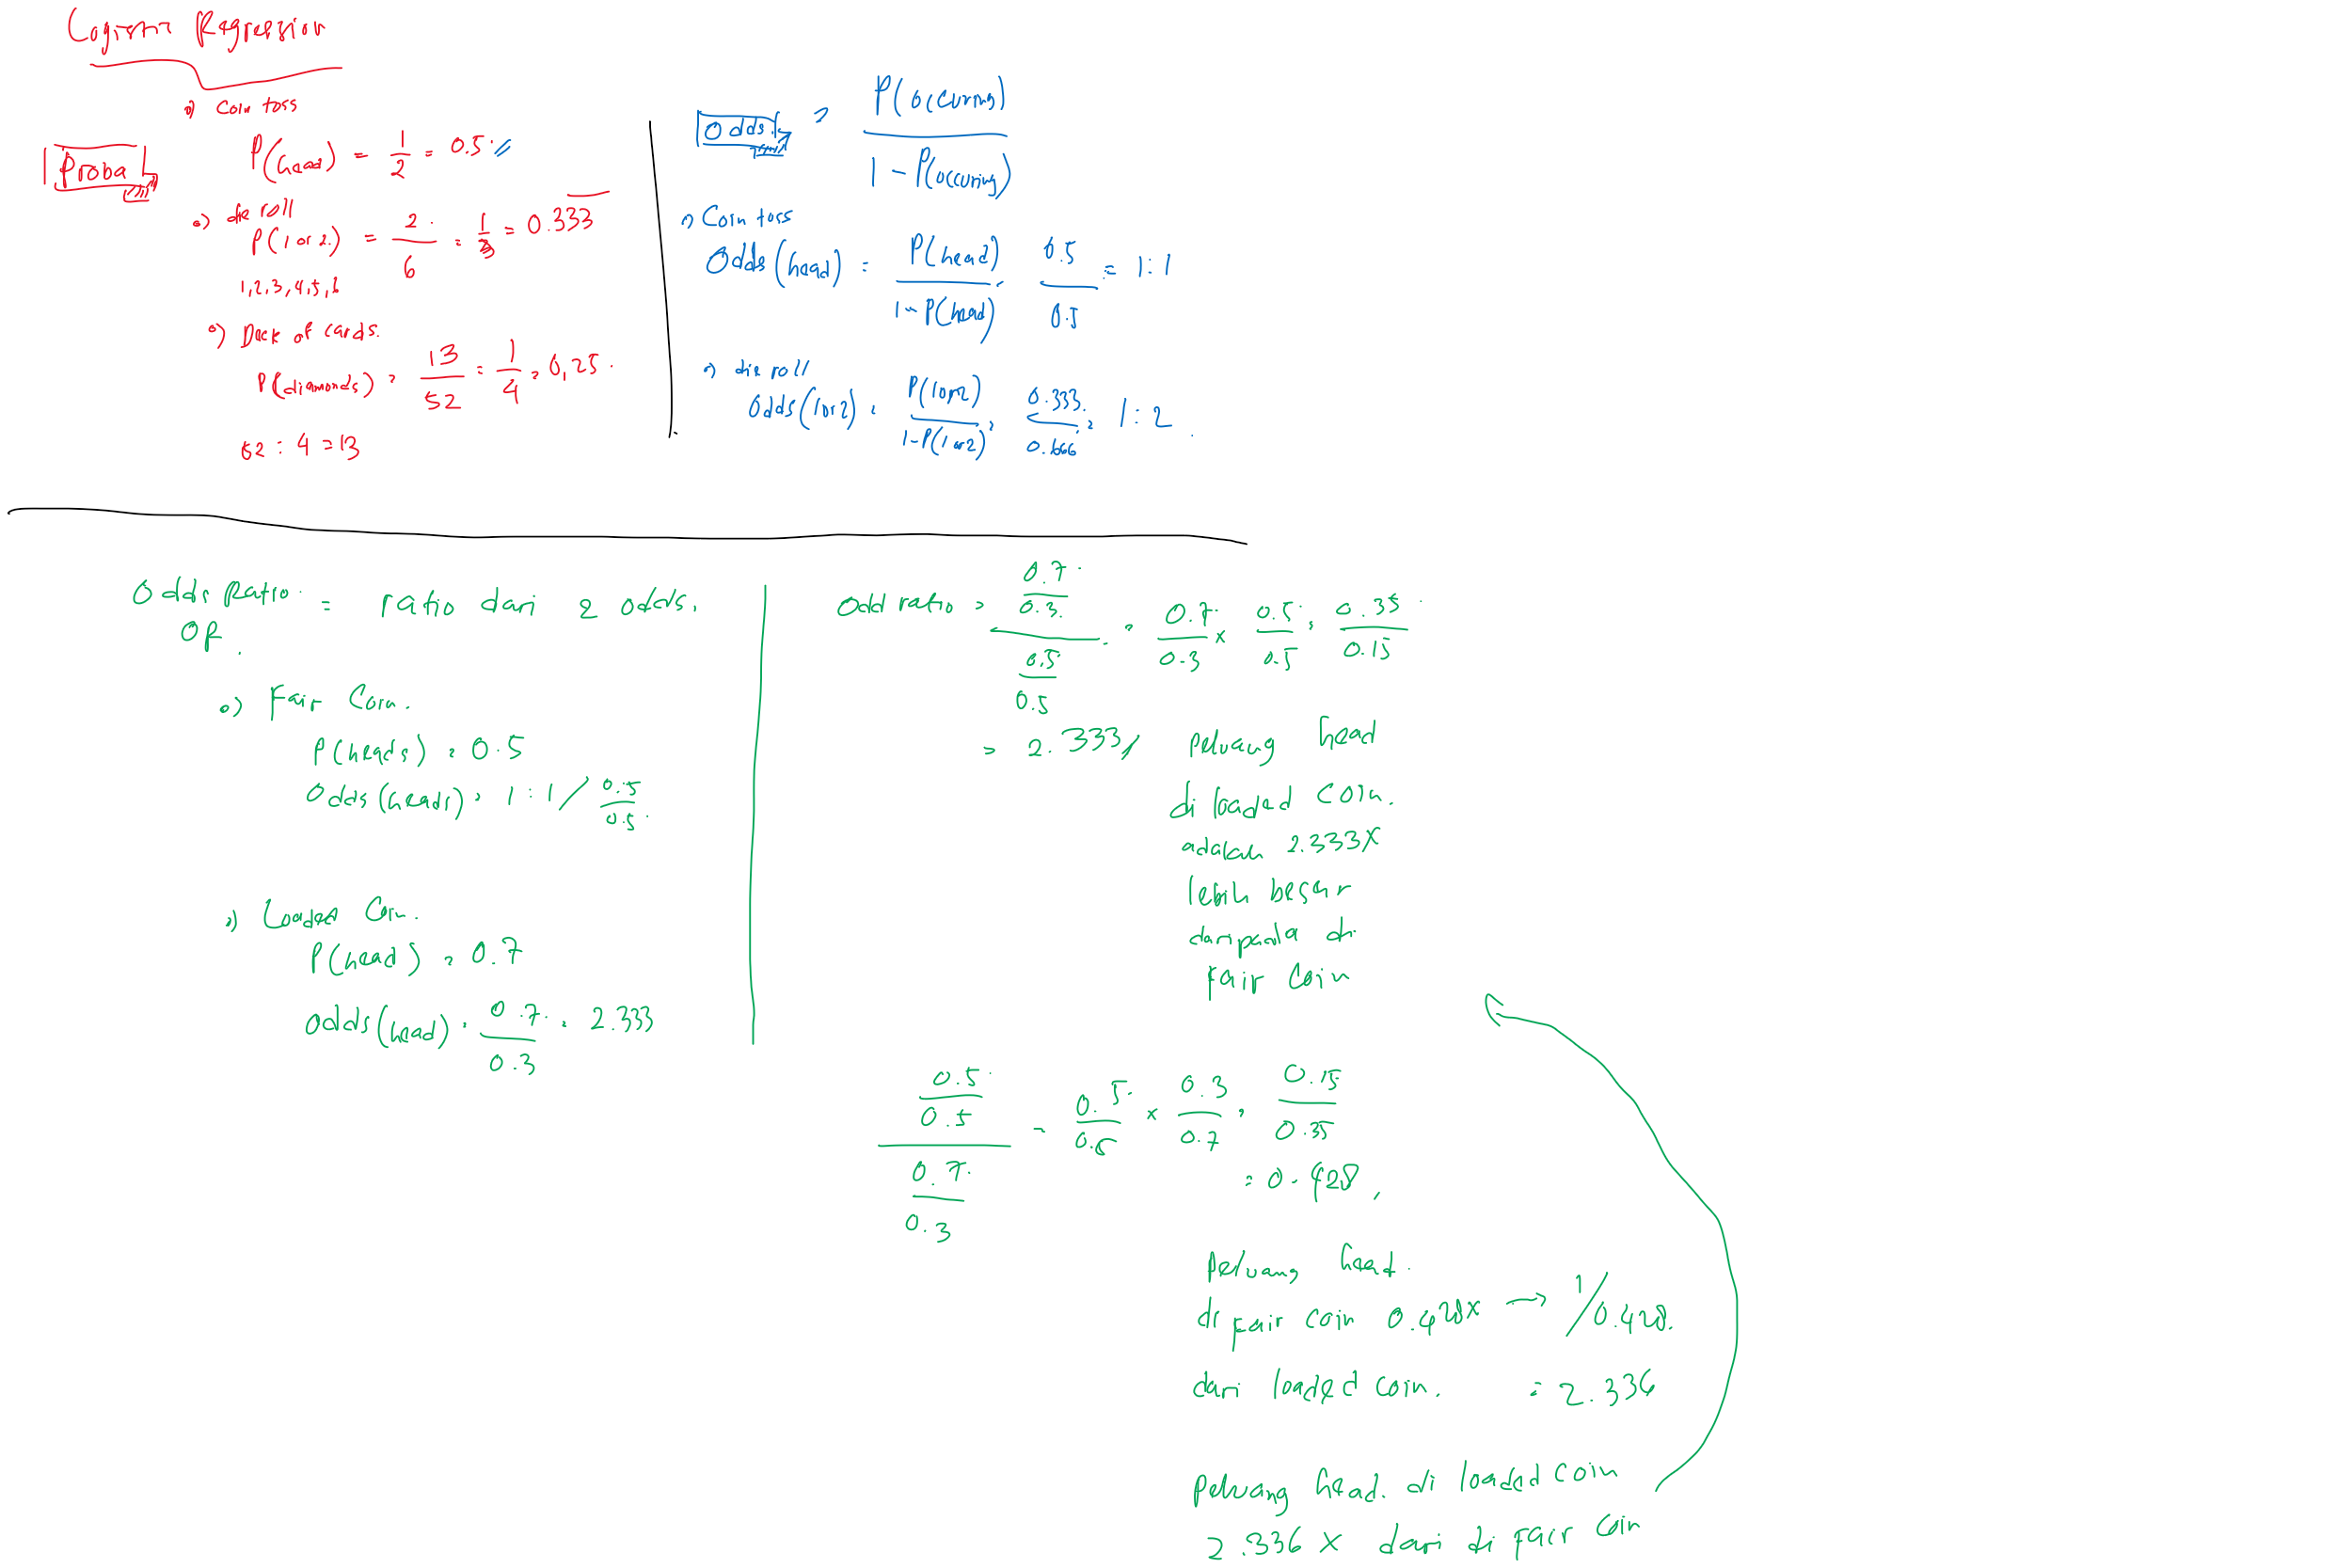 Logistic Regression
•) Coin toss
Proba
P(head) = 1/2 = 0.5
•) die roll
P(1 or 2) = 2/6 = 1/3 = 0.333
1,2,3,4,5,6
•) Deck of cards.
P(diamonds) = 13/52 = 1/4 = 0,25.
52 : 4 = 13
Odds = P(occuring) / 1 - P(occuring)
•) Coin toss
Odds (head) = P(head) / 1 - P(head) 0.5/0.5 = 1:1
•) die roll
Odds (1 or 2) = P(1 or 2) / 1 - P(1 or 2) = 0.333/0.666 = 1:2
Odds Ratio = ratio dari 2 odds.
OR.
•) Fair Coin.
P(heads) = 0.5
Odds (heads) = 1:1 / 0.5/0.5
•) Loaded Coin.
P(head) = 0.7
Odds (head) = 0.7/0.3 = 2.333
Odd ratio = 0.7/0.3 / 0.5/0.5 = 0.7/0.3 x 0.5/0.5 = 0.35/0.15
= 2.333 Peluang head
di loaded coin.
adalah 2.333x
lebih besar
daripada di
Fair Coin
0.5/0.5 / 0.7/0.3 = 0.5/0.5 x 0.3/0.7 = 0.15/0.35
= 0.428
Peluang head.
di Fair coin 0.428x → 1/0.428.
dari loaded coin. = 2.336
Peluang head. di loaded coin
2.336 x dari di Fair Coin